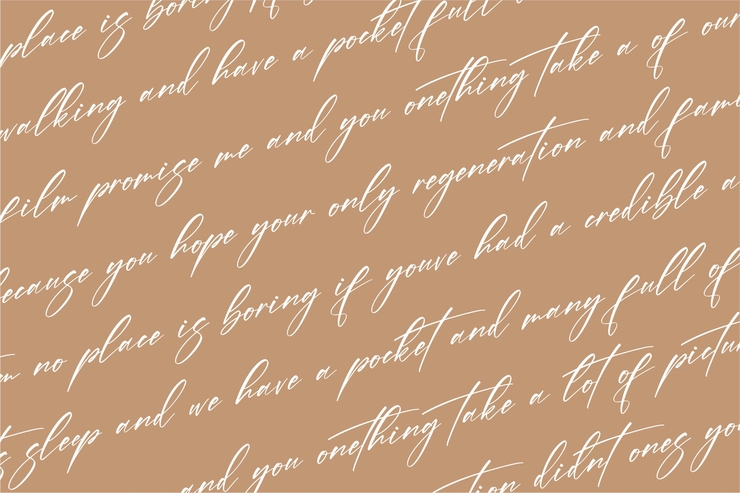 place is boring if
walking and have a pocket full
film promise me and you onething take a of our
ecause you hope your only regeneration and fami
m no place is boring if youve had a credible a
s sleep and we have a pocket and many full of
and you onething take a lot of pictur
tion didnt ones yo